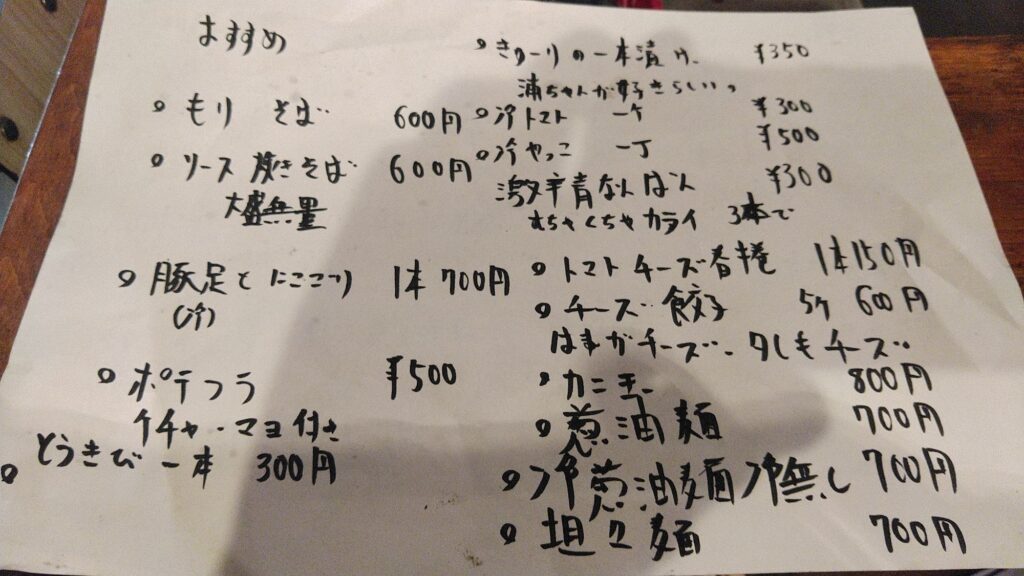 おすすめ
もり そば 600円
ソース 焼きそば 600円
大盛無量
豚足と にこごり 1本 700円
(冷)
ポテフラ ¥500
ケチャ・マヨ付き
とうきび 一本 300円
きゅーりの一本漬け ¥350
浦ちゃんが好きらしい。
冷トマト 一ケ ¥300
冷やっこ 一丁 ¥500
激辛青なんばん ¥300
むちゃくちゃカライ 3本で
トマトチーズ春捲 1本150円
チーズ餃子 5ケ 600円
はすがチーズ、クしもチーズ
カニ玉 800円
葱油麺 700円
冷葱油麺 冷無し 700円
坦々麺 700円